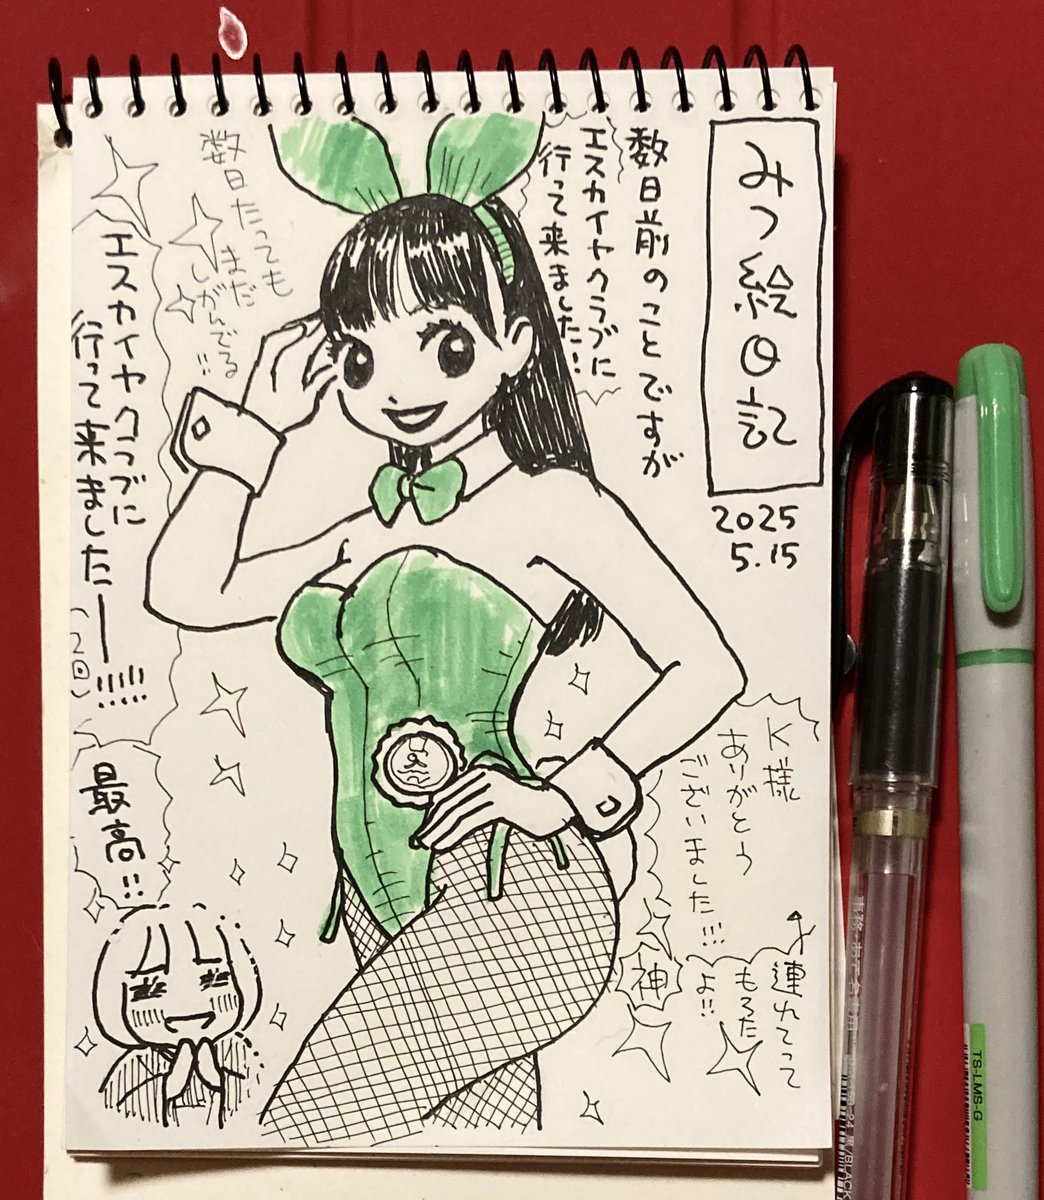 みつ絵日記
2025
5.15
数日前のことですが
エスカイヤクラブに
行って来ました!
数日たっても
まだ
しがんでる!!
エスカイヤクラブに
行って来ましたー!!!!!
(2回)
最高!!
K様
ありがとう
ございました!!!
連れてって
もろた
よ!!
神
TS-LMS-G